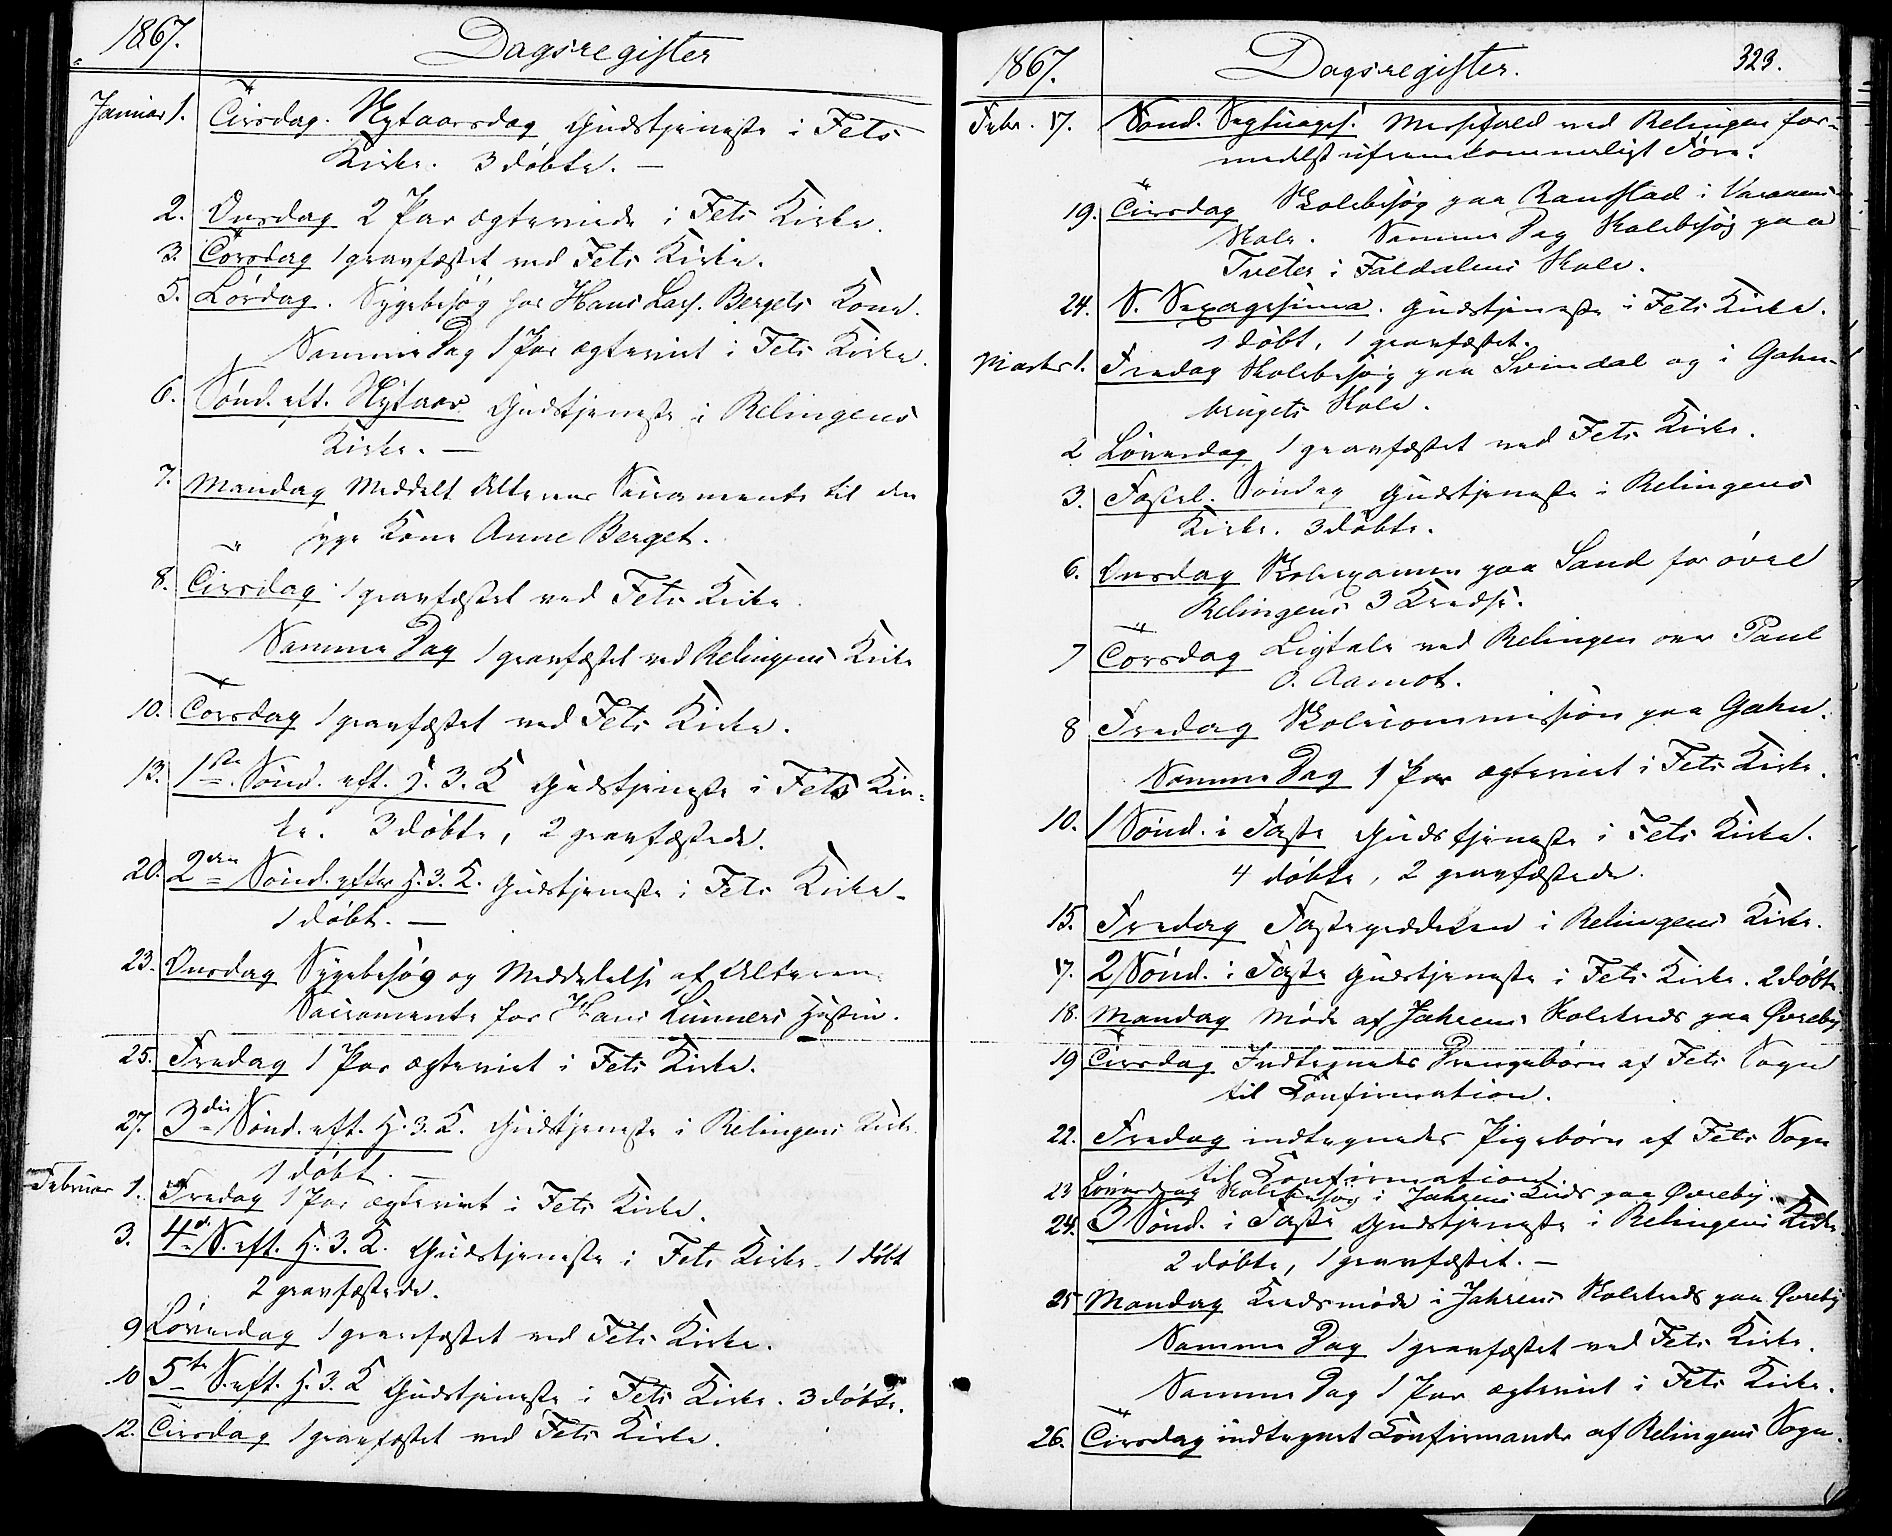 1867. Dagsregister
Januar 1. Tirsdag. Nytaarsdag Gudstjeneste i Fets
Kirke. 3 døbte. —
2. Onsdag 2 Par ægteviede i Fets Kirke.
3. Torsdag 1 gravfæstet ved Fets Kirke.
5. Lørdag. Sygebesøg hos Hans Lars. Bergets Kone.
Samme Dag 1 Par ægteviet i Fets Kirke.
6. Sønd. eft. Nytaar Gudstjeneste i Relingens
Kirke. —
7. Mandag Meddelt Alterens Sacramente til den
syge Kone Anne Berget.
8. Tirsdag 1 gravfæstet ved Fets Kirke.
Samme Dag 1 gravfæstet ved Relingens Kirke
10. Torsdag 1 gravfæstet ved Fets Kirke.
13. 1ste Sønd. eft. H. 3. K Gudstjeneste i Fets Kir-
ke. 3 døbte, 2 gravfæstede.
20. 2den Sønd. efter H. 3. K. Gudstjeneste i Fets Kirke.
1 døbt. —
23. Onsdag Sygebesøg og Meddelelse af Alterens
Sacramente for Hans Lunners Hustru.
25. Fredag 1 Par ægteviet i Fets Kirke.
27. 3die Sønd. eft. H. 3. K. Gudstjeneste i Relingens Kirke.
1 døbt. —
Februar 1. Fredag 1 Par ægteviet i Fets Kirke.
3. 4de S. eft. H. 3. K. Gudstjeneste i Fets Kirke. 1 døbt
2 gravfæstede.
9 Løverdag 1 gravfæstet ved Fets Kirke.
10 5te S. eft. H. 3. K Gudstjeneste i Fets Kirke. 3 døbte.
12. Tirsdag 1 gravfæstet ved Fets Kirke.
1867. Dagsregister. 323.
Febr. 17. Sønd. Septuages. Messefald ved Relingen for-
medelst ufremkommeligt Føre.
19. Tirsdag Skolebesøg paa Ramstad i Varaaens
Skole. Samme Dag Skolebesøg paa
Tveter i Faldalens Skole.
24. S. Sexagesima. Gudstjeneste i Fets Kirke.
1 døbt, 1 gravfæstet.
Marts 1. Fredag Skolebesøg paa Svindal og i Gahn-
brugets Skole.
2 Løverdag 1 gravfæstet ved Fets Kirke.
3. Fastel. Søndag Gudstjeneste i Relingens
Kirke. 3 døbte.
6. Onsdag Skolexamen paa Sand for øvre
Relingens 3 Kredse.
7 Torsdag Ligtale ved Relingen over Paul
O. Aamot.
8 Fredag Skolecommission paa Gahn.
Samme Dag 1 Par ægteviet i Fets Kirke.
10. 1 Sønd. i Faste Gudstjeneste i Fets Kirke.
4 døbte, 2 gravfæstede.
15. Fredag Fasteprædiken i Relingens Kirke.
17. 2 Sønd. i Faste Gudstjeneste i Fets Kirke. 2 døbte
18. Mandag Møde af Jahrens Skolekreds paa Øvreby
19 Tirsdag Indtegnedes Drengebørn af Fets Sogn
til Confirmation.
22. Fredag indtegnedes Pigebørn af Fets Sogn
til Confirmation.
23 Løverdag Skolebesøg i Jahrens Kreds paa Øvreby.
24. 3 Sønd. i Faste Gudstjeneste i Relingens Kirke.
2 døbte, 1 gravfæstet. —
25 Mandag Kredsmøde i Jahrens Skolekreds paa Øvreby
Samme Dag 1 gravfæstet ved Fets Kirke.
Samme Dag 1 Par ægteviet i Fets Kirke.
26. Tirsdag indtegnet Confirmande af Relingens Sogn.